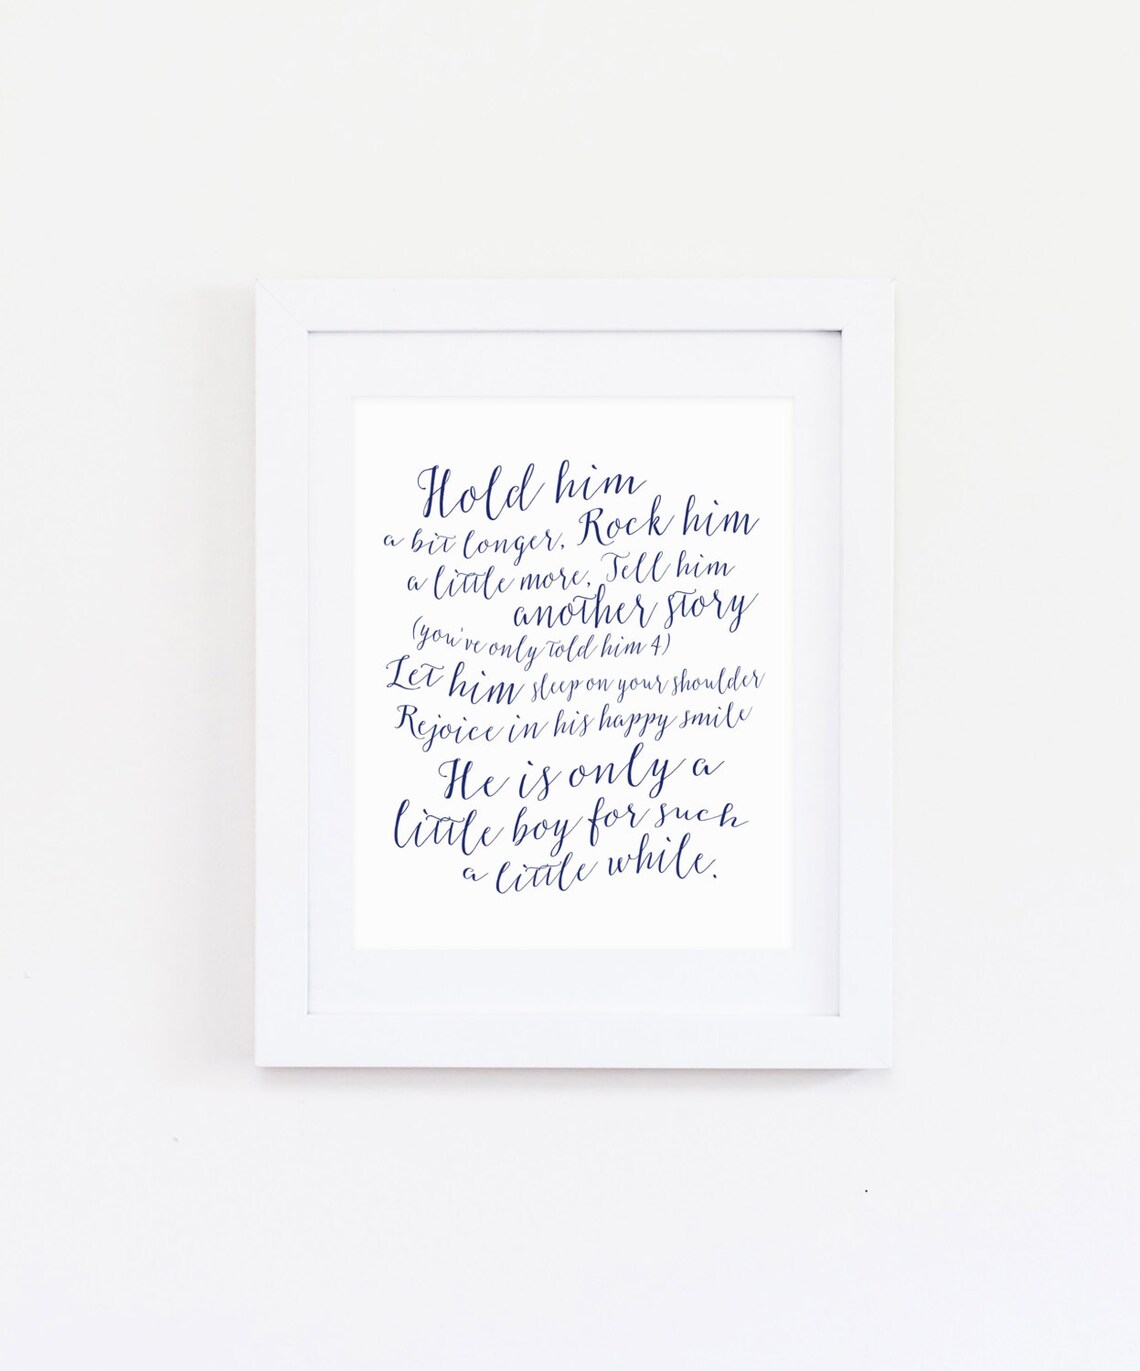 Hold him
a bit longer, Rock him
a little more, Tell him
another story
(you've only told him 4)
Let him sleep on your shoulder
Rejoice in his happy smile
He is only a
little boy for such
a little while.